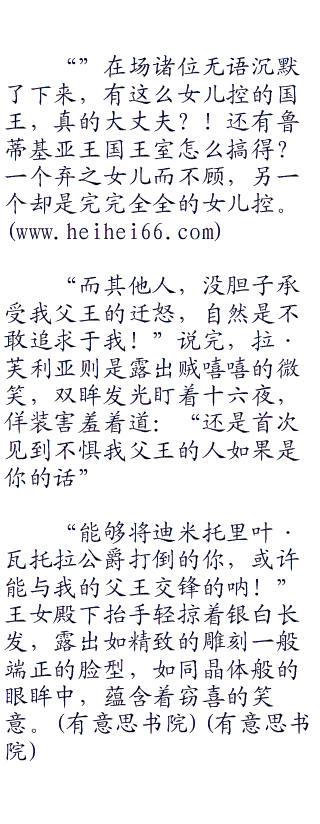 “” 在场诸位无语沉默
了下来，有这么女儿控的国
王，真的大丈夫？！还有鲁
蒂基亚王国王室怎么搞得？
一个弃之女儿而不顾，另一
个却是完完全全的女儿控。
(www.heihei66.com)
“而其他人，没胆子承
受我父王的迁怒，自然是不
敢追求于我！”说完，拉·
芙利亚则是露出贼嘻嘻的微
笑，双眸发光盯着十六夜，
佯装害羞着道：“还是首次
见到不惧我父王的人如果是
你的话”
“能够将迪米托里叶·
瓦托拉公爵打倒的你，或许
能与我的父王交锋的呐！”
王女殿下抬手轻掠着银白长
发，露出如精致的雕刻一般
端正的脸型，如同晶体般的
眼眸中，蕴含着窃喜的笑
意。(有意思书院)(有意思书
院)